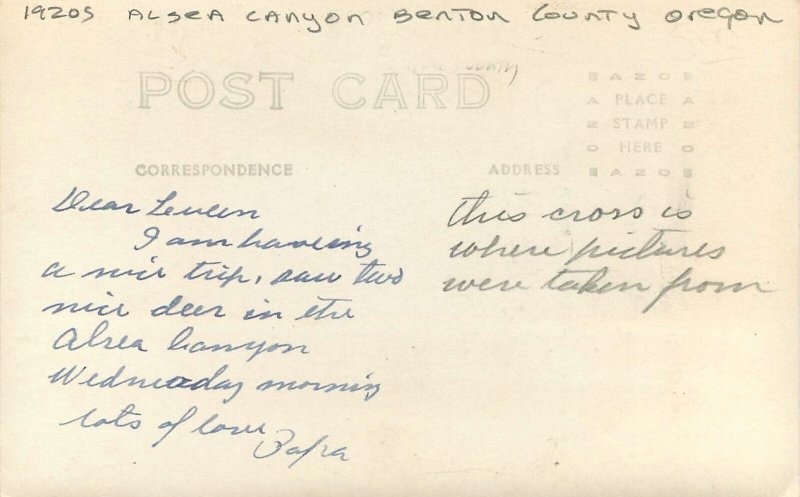 1920S ALSEA CANYON BENTON COUNTY OREGON
POST CARD
PLACE
STAMP
HERE
CORRESPONDENCE
ADDRESS
Dear
I am haveing
a nice trip, saw two
nice deer in the
Alsea Canyon
Wednesday morning
lots of love
Papa
this cross is
where pictures
were taken from